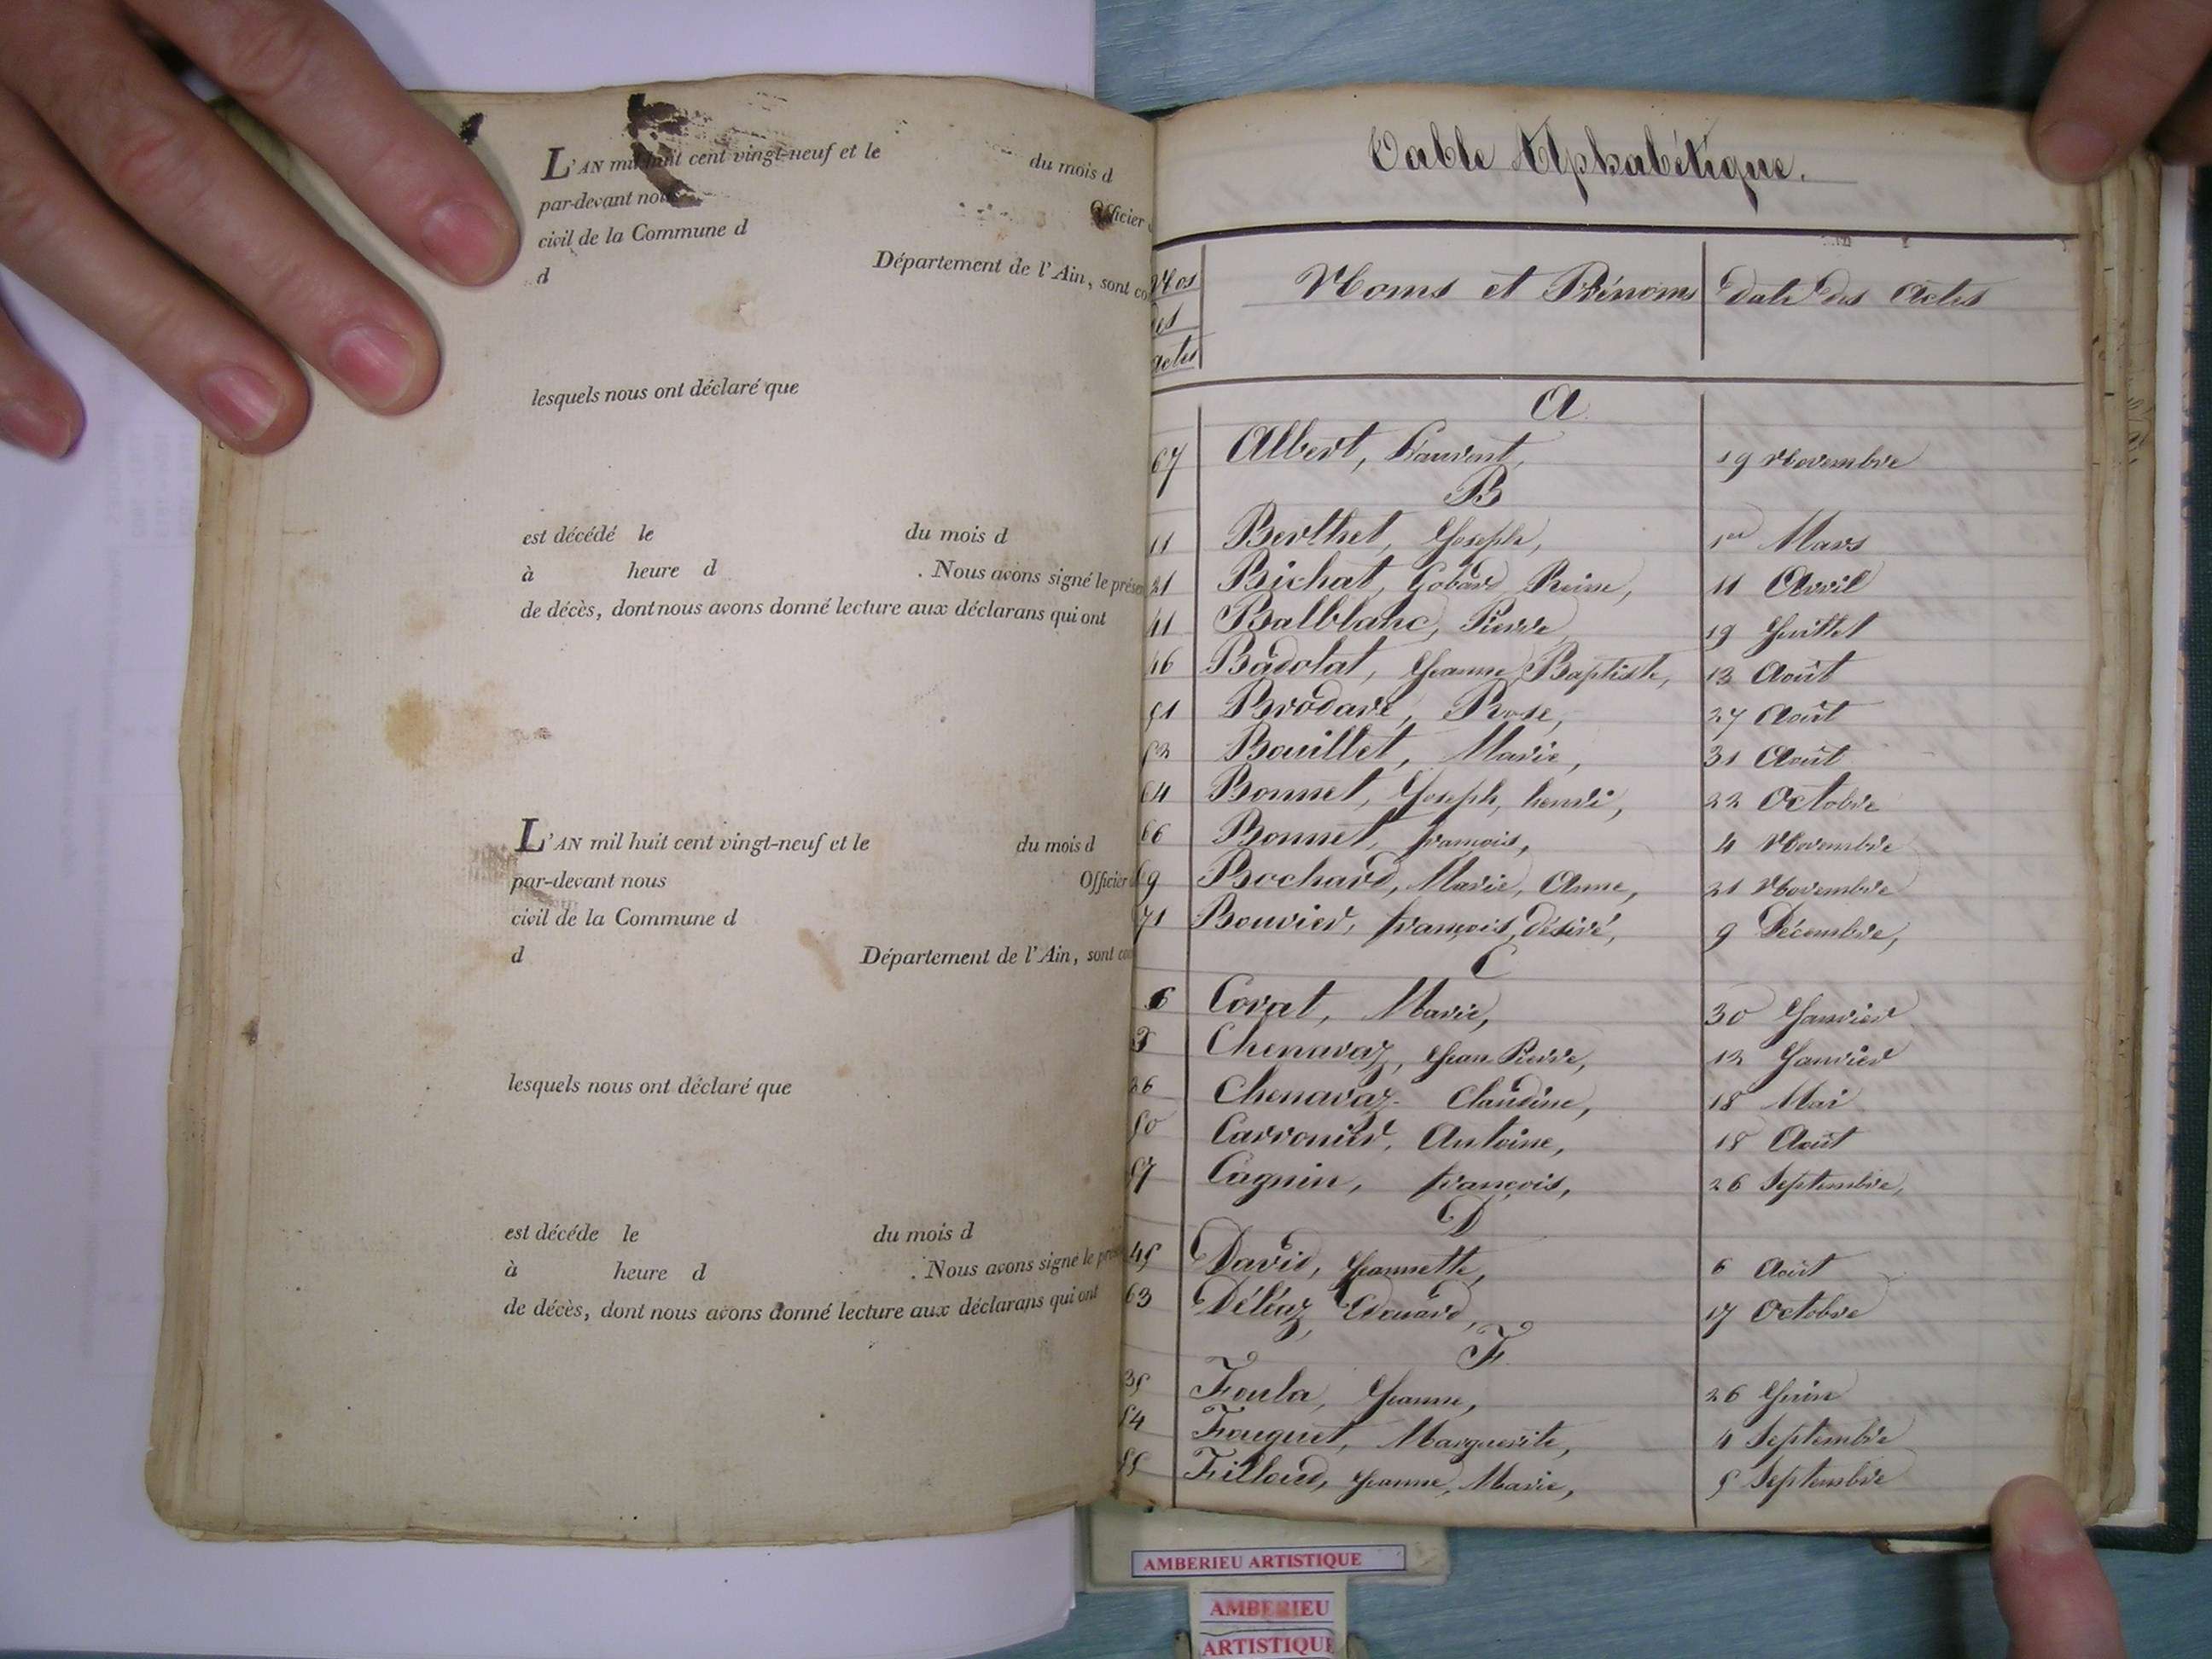 L'AN mil huit cent vingt-neuf et le du mois d
par-devant nous Officier
civil de la Commune d
d Département de l'Ain, sont co
lesquels nous ont déclaré que
est décédé le du mois d
à heure d . Nous avons signé le présen
de décès, dont nous avons donné lecture aux déclarans qui ont
L'AN mil huit cent vingt-neuf et le du mois d
par-devant nous Officier
civil de la Commune d
d Département de l'Ain, sont co
lesquels nous ont déclaré que
est décédé le du mois d
à heure d . Nous avons signé le prés
de décès, dont nous avons donné lecture aux déclarans qui ont
Table Alphabétique.
Nos des actes Noms et Prénoms date des Actes
A
67 Albert, Laurent, 19 Novembre
B
11 Berthet, Joseph, 1er Mars
21 Bichat, Gobard Reine, 11 Avril
41 Balblanc, Pierre 19 Juillet
46 Badolat, Jeanne Baptiste, 13 Août
51 Brodave, Rose, 27 Août
53 Bouillet, Marie, 31 Août
64 Bonnet, Joseph, henri, 22 Octobre
66 Bonnet, françois, 4 Novembre
69 Bochard, Marie, Anne, 21 Novembre
71 Bouvier, françois, désiré, 9 Décembre,
C
6 Corat, Marie, 30 Janvier
3 Chenavaz, Jean Pierre, 12 Janvier
26 Chenavaz Claudine, 18 Mai
50 Carronier, Antoine, 18 Août
57 Cagnin, françois, 26 Septembre,
D
45 David, Jeannette, 6 Août
63 Déléaz, Edouard, 17 Octobre
F
35 Foula, Jeanne, 26 Juin
54 Fouquet, Marguerite, 4 Septembre
55 Filloud, Jeanne, Marie, 5 Septembre
AMBERIEU ARTISTIQUE
AMBERIEU
ARTISTIQUE